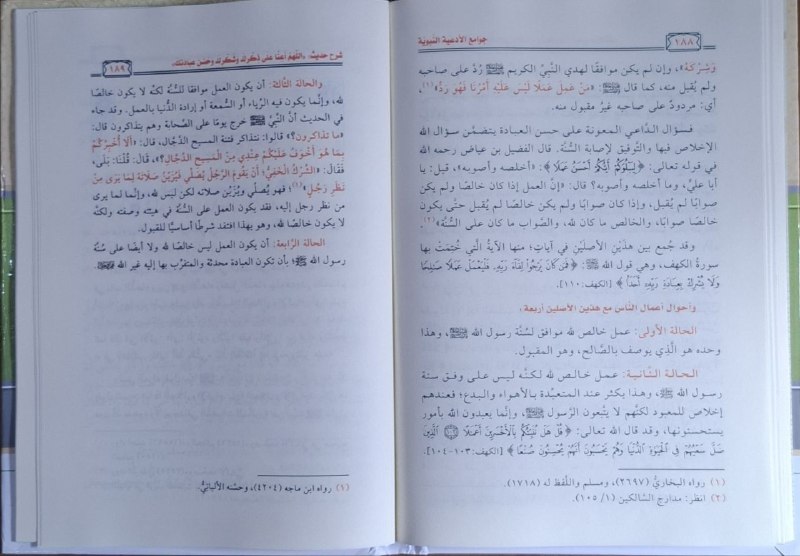 ١٨٨
جوامع الأدعية النبوية
وَشِرْكَهُ»، وإن لم يكن موافقًا لهدي النبيِّ الكريم ﷺ رُدَّ على صاحبه
ولم يُقبل منه، كما قال ﷺ: «مَنْ عَمِلَ عَمَلًا لَيْسَ عَلَيْهِ أَمْرُنَا فَهُوَ رَدٌّ»(١)،
أي: مردودٌ على صاحبه غيرُ مقبول منه.
فسؤال الدَّاعي المعونة على حسن العبادة يتضمَّن سؤال
الإخلاص فيها والتَّوفيق لإصابة السُّنَّة. قال الفضيل بن عياض رحمه الله
في قوله تعالى: ﴿لِيَبْلُوَكُمْ أَيُّكُمْ أَحْسَنُ عَمَلًا﴾: «أخلصه وأصوبه»، قيل: يا
أبا عليٍّ، وما أخلصه وأصوبه؟ قال: «إنَّ العمل إذا كان خالصًا ولم يكن
صوابًا لم يُقبل، وإذا كان صوابًا ولم يكن خالصًا لم يُقبل حتَّى يكون
خالصًا صوابًا، والخالص ما كان لله، والصَّواب ما كان على السُّنَّة»(٢).
وقد جُمع بين هذَيْن الأصلَيْن في آياتٍ؛ منها الآيةُ الَّتي خُتمَتْ بها
سورةُ الكهف، وهي قول الله ﷻ: ﴿فَمَن كَانَ يَرْجُوا۟ لِقَآءَ رَبِّهِۦ فَلْيَعْمَلْ عَمَلًا صَٰلِحًا
وَلَا يُشْرِكْ بِعِبَادَةِ رَبِّهِۦٓ أَحَدًۢا﴾ [الكهف: ١١٠].
وأحوال أعمال النَّاس مع هذين الأصلين أربعة:
الحالة الأولى: عمل خالص لله موافق لسُنَّة رسول الله ﷺ، وهذا
وحده هو الَّذي يوصف بالصَّالح، وهو المقبول.
الحالة الثَّانية: عمل خالص لله لكنَّه ليس على وفق سنة
رسول الله ﷺ، وهذا يكثر عند المتعبِّدة بالأهواء والبدع؛ فعندهم
إخلاص للمعبود لكنَّهم لا يتَّبعون الرَّسول ﷺ، وإنَّما يعبدون الله بأمور
يستحسنونها، وقد قال الله تعالى: ﴿قُلْ هَلْ نُنَبِّئُكُم بِٱلْأَخْسَرِينَ أَعْمَٰلًا ۝ ٱلَّذِينَ
ضَلَّ سَعْيُهُمْ فِى ٱلْحَيَوٰةِ ٱلدُّنْيَا وَهُمْ يَحْسَبُونَ أَنَّهُمْ يُحْسِنُونَ صُنْعًا﴾ [الكهف: ١٠٣-١٠٤].
(١) رواه البخاريُّ (٢٦٩٧)، ومسلم واللَّفظ له (١٧١٨).
(٢) انظر: مدارج السَّالكين (١/ ١٠٥).
شرح حديث: «اللَّهمَّ أعنَّا على ذكرك وشكرك وحسن عبادتك»
١٨٩
والحالة الثَّالثة: أن يكون العمل موافقًا للسُّنَّة لكنَّه لا يكون خالصًا
لله، وإنَّما يكون فيه الرِّياء أو السُّمعة أو إرادة الدُّنيا بالعمل. وقد جاء
في الحديث أنَّ النَّبيَّ ﷺ خرج يومًا على الصَّحابة وهم يتذاكرون قال:
«ما تذاكرون؟» قالوا: نتذاكر فتنة المسيح الدَّجَّال، قال: «أَلَا أُخْبِرُكُمْ
بِمَا هُوَ أَخْوَفُ عَلَيْكُمْ عِنْدِي مِنَ الْمَسِيحِ الدَّجَّالِ؟»، قَالَ: قُلْنَا: بَلَى،
فَقَالَ: «الشِّرْكُ الْخَفِيُّ؛ أَنْ يَقُومَ الرَّجُلُ يُصَلِّي فَيُزَيِّنُ صَلَاتَهُ لِمَا يَرَى مِنْ
نَظَرِ رَجُلٍ»(١)؛ فهو يُصلِّي ويُزيِّن صلاته لكن ليس لله، وإنَّما لما يرى
من نظر رجل إليه، فقد يكون العمل على السُّنَّة في هيئته وصفته ولكنَّه
لا يكون خالصًا لله، وهو بهذا افتقد شرطًا أساسيًّا للقبول.
الحالة الرَّابعة: أن يكون العمل ليس خالصًا لله ولا أيضًا على سُنَّة
رسول الله ﷺ؛ بأن تكون العبادة محدثةً والمتقرَّب بها إليه غير الله ﷻ.
(١) رواه ابن ماجه (٤٢٠٤)، وحسَّنه الألبانيُّ.